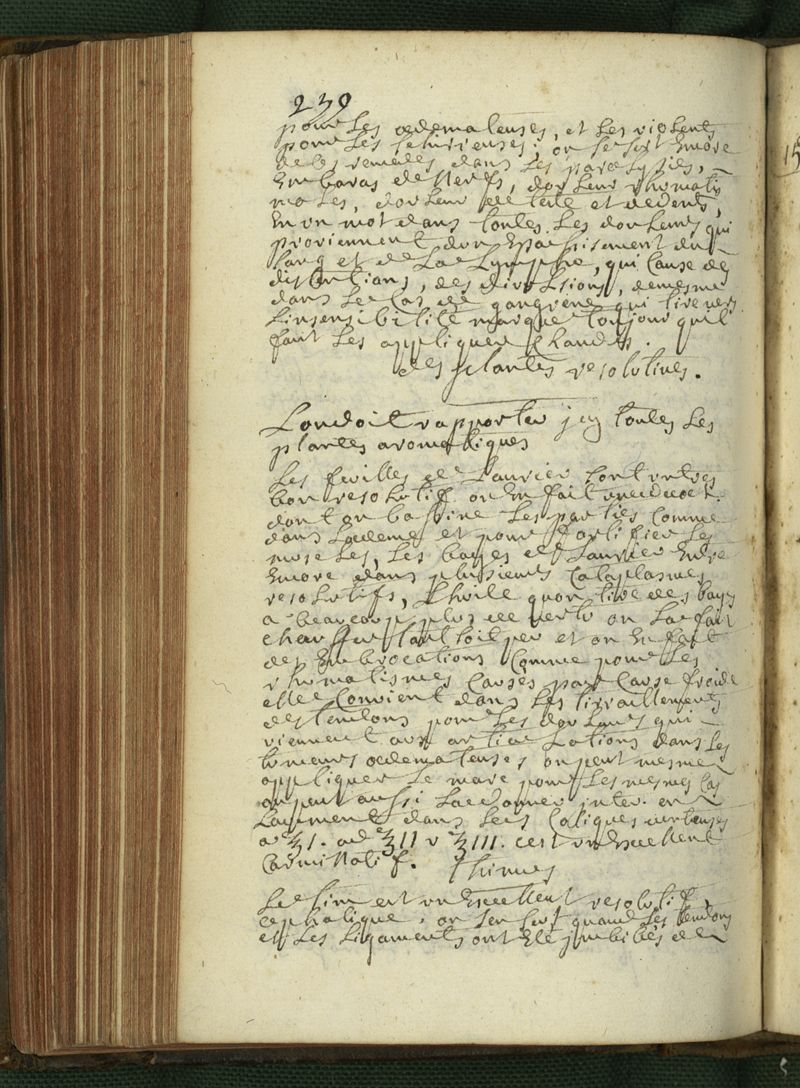 239
pour les œdemateuses, et les violents
pour les schirreuses. on se sert encore
de ces remedes dans les paralysies,
Embaras de Nerfs, douleur rhomatis
males, douleur de tete et de dents,
En un mot dans toutes les douleurs qui
proviennent d'un Epaississement du
sang et de La Lymphe, qui Cause des
distentions, des divulsions, de mesme
dans le Cas de gangrene qui tire vers
Linsensibilité marque toujour quil
faut les appliquer Chaudes.
des plantes resolutives.
Lon doit rapporter jcy toutes Les
plantes aromatiques
Les feuilles de Laurier sont un tres
bon resolutif on En fait une decoct.
dont on bassine Les parties Comme
dans Lœdeme et pour fortifier Les
muscles, Les bayes de Laurier Entre
Encore dans plusieurs Cataplasmes
resolutifs, Lhuile quon tire des bayes
a beaucoup plus de vertu on La fait
chauffer tant soit peu et on En fait
des Embrocations Comme pour Les
rhomatismes Causés par Cause froide
elle Convient dans Les tiraillements
des tendons pour Les douleurs qui
viennent aux articulations dans Les
tumeurs œdemateuses on peut mesme
appliquer Le marc pour Les mesmes Cas
on peut aussi La donner inter. en
Lavement dans Les Coliques venteuses
a ʒI. ad ʒII v ʒIII. cest un Excellent
Carminatif. thimus
Le tim est un Excellent resolutif,
cephalique. on sen sert quand Les tendons
et Les Ligaments ont Eté jmbibés de